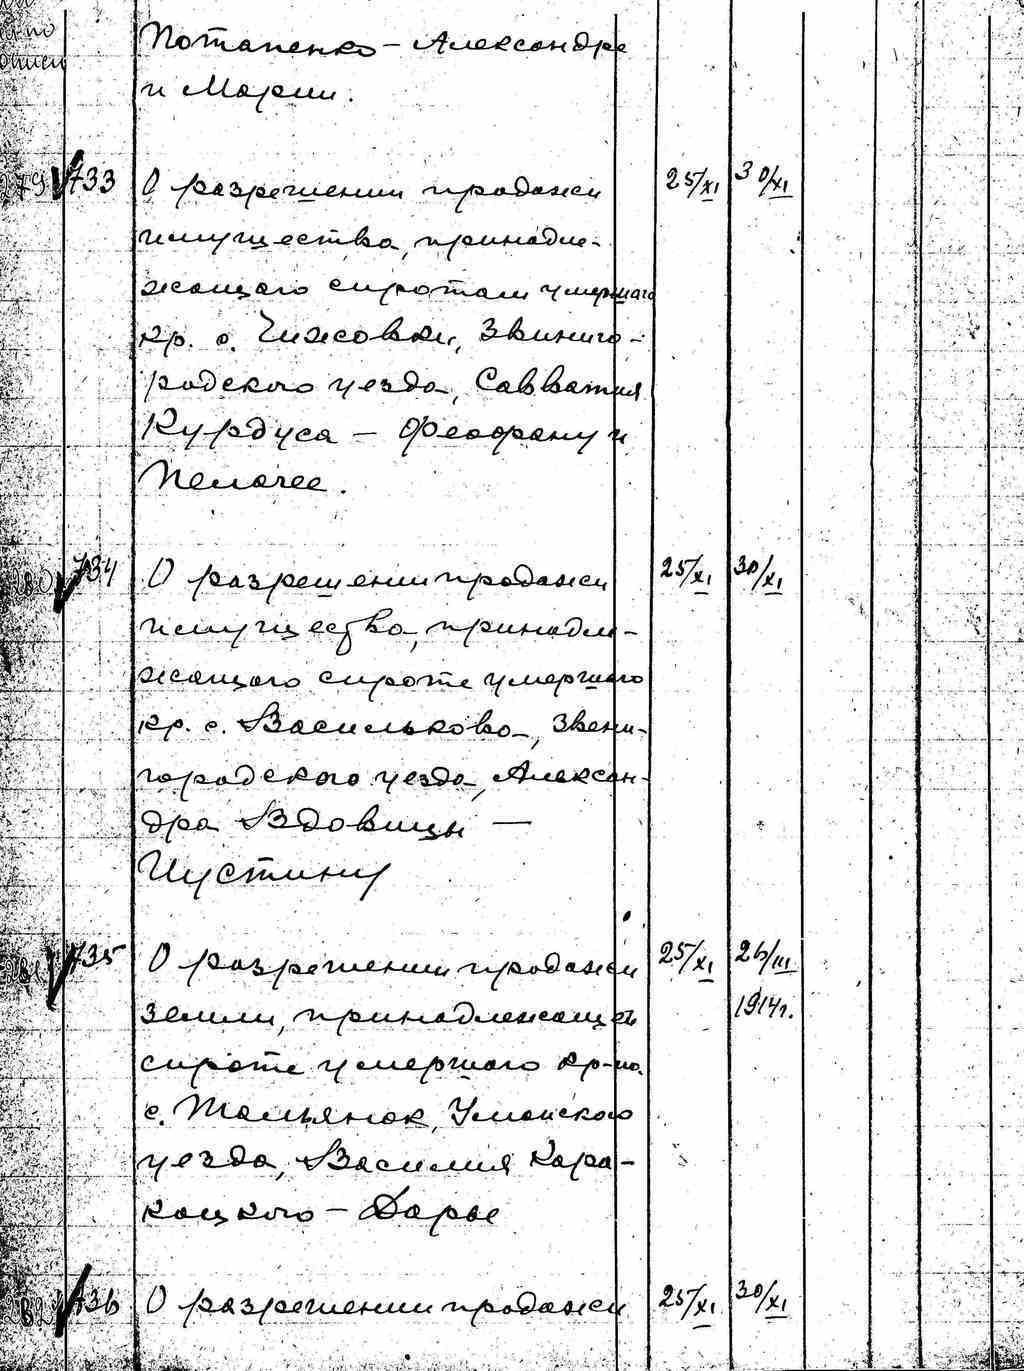 Потапенко – Александре
и Марии.
279 733 О разрешении продажи 25/XI 30/XI
имущества, принадле-
жащаго сиротам умершаго
кр. с. Чижовки, Звиниго-
родского уезда, Савватия
Курдуса – Феофану и
Пелагее.
280 734 О разрешении продажи 25/XI 30/XI
имущества, принадле-
жащаго сироте умершаго
кр. с. Васильково, Звени-
городского уезда, Алексан-
дра Вдовицы –
Иустину
281 735 О разрешении продажи 25/XI 26/III
1914г.
земли, принадлежащей
сироте умершаго кр-на
с. Тальянок, Уманского
уезда, Василия Кара-
кацкого – Дарье
282 736 О разрешении продажи 25/XI 30/XI